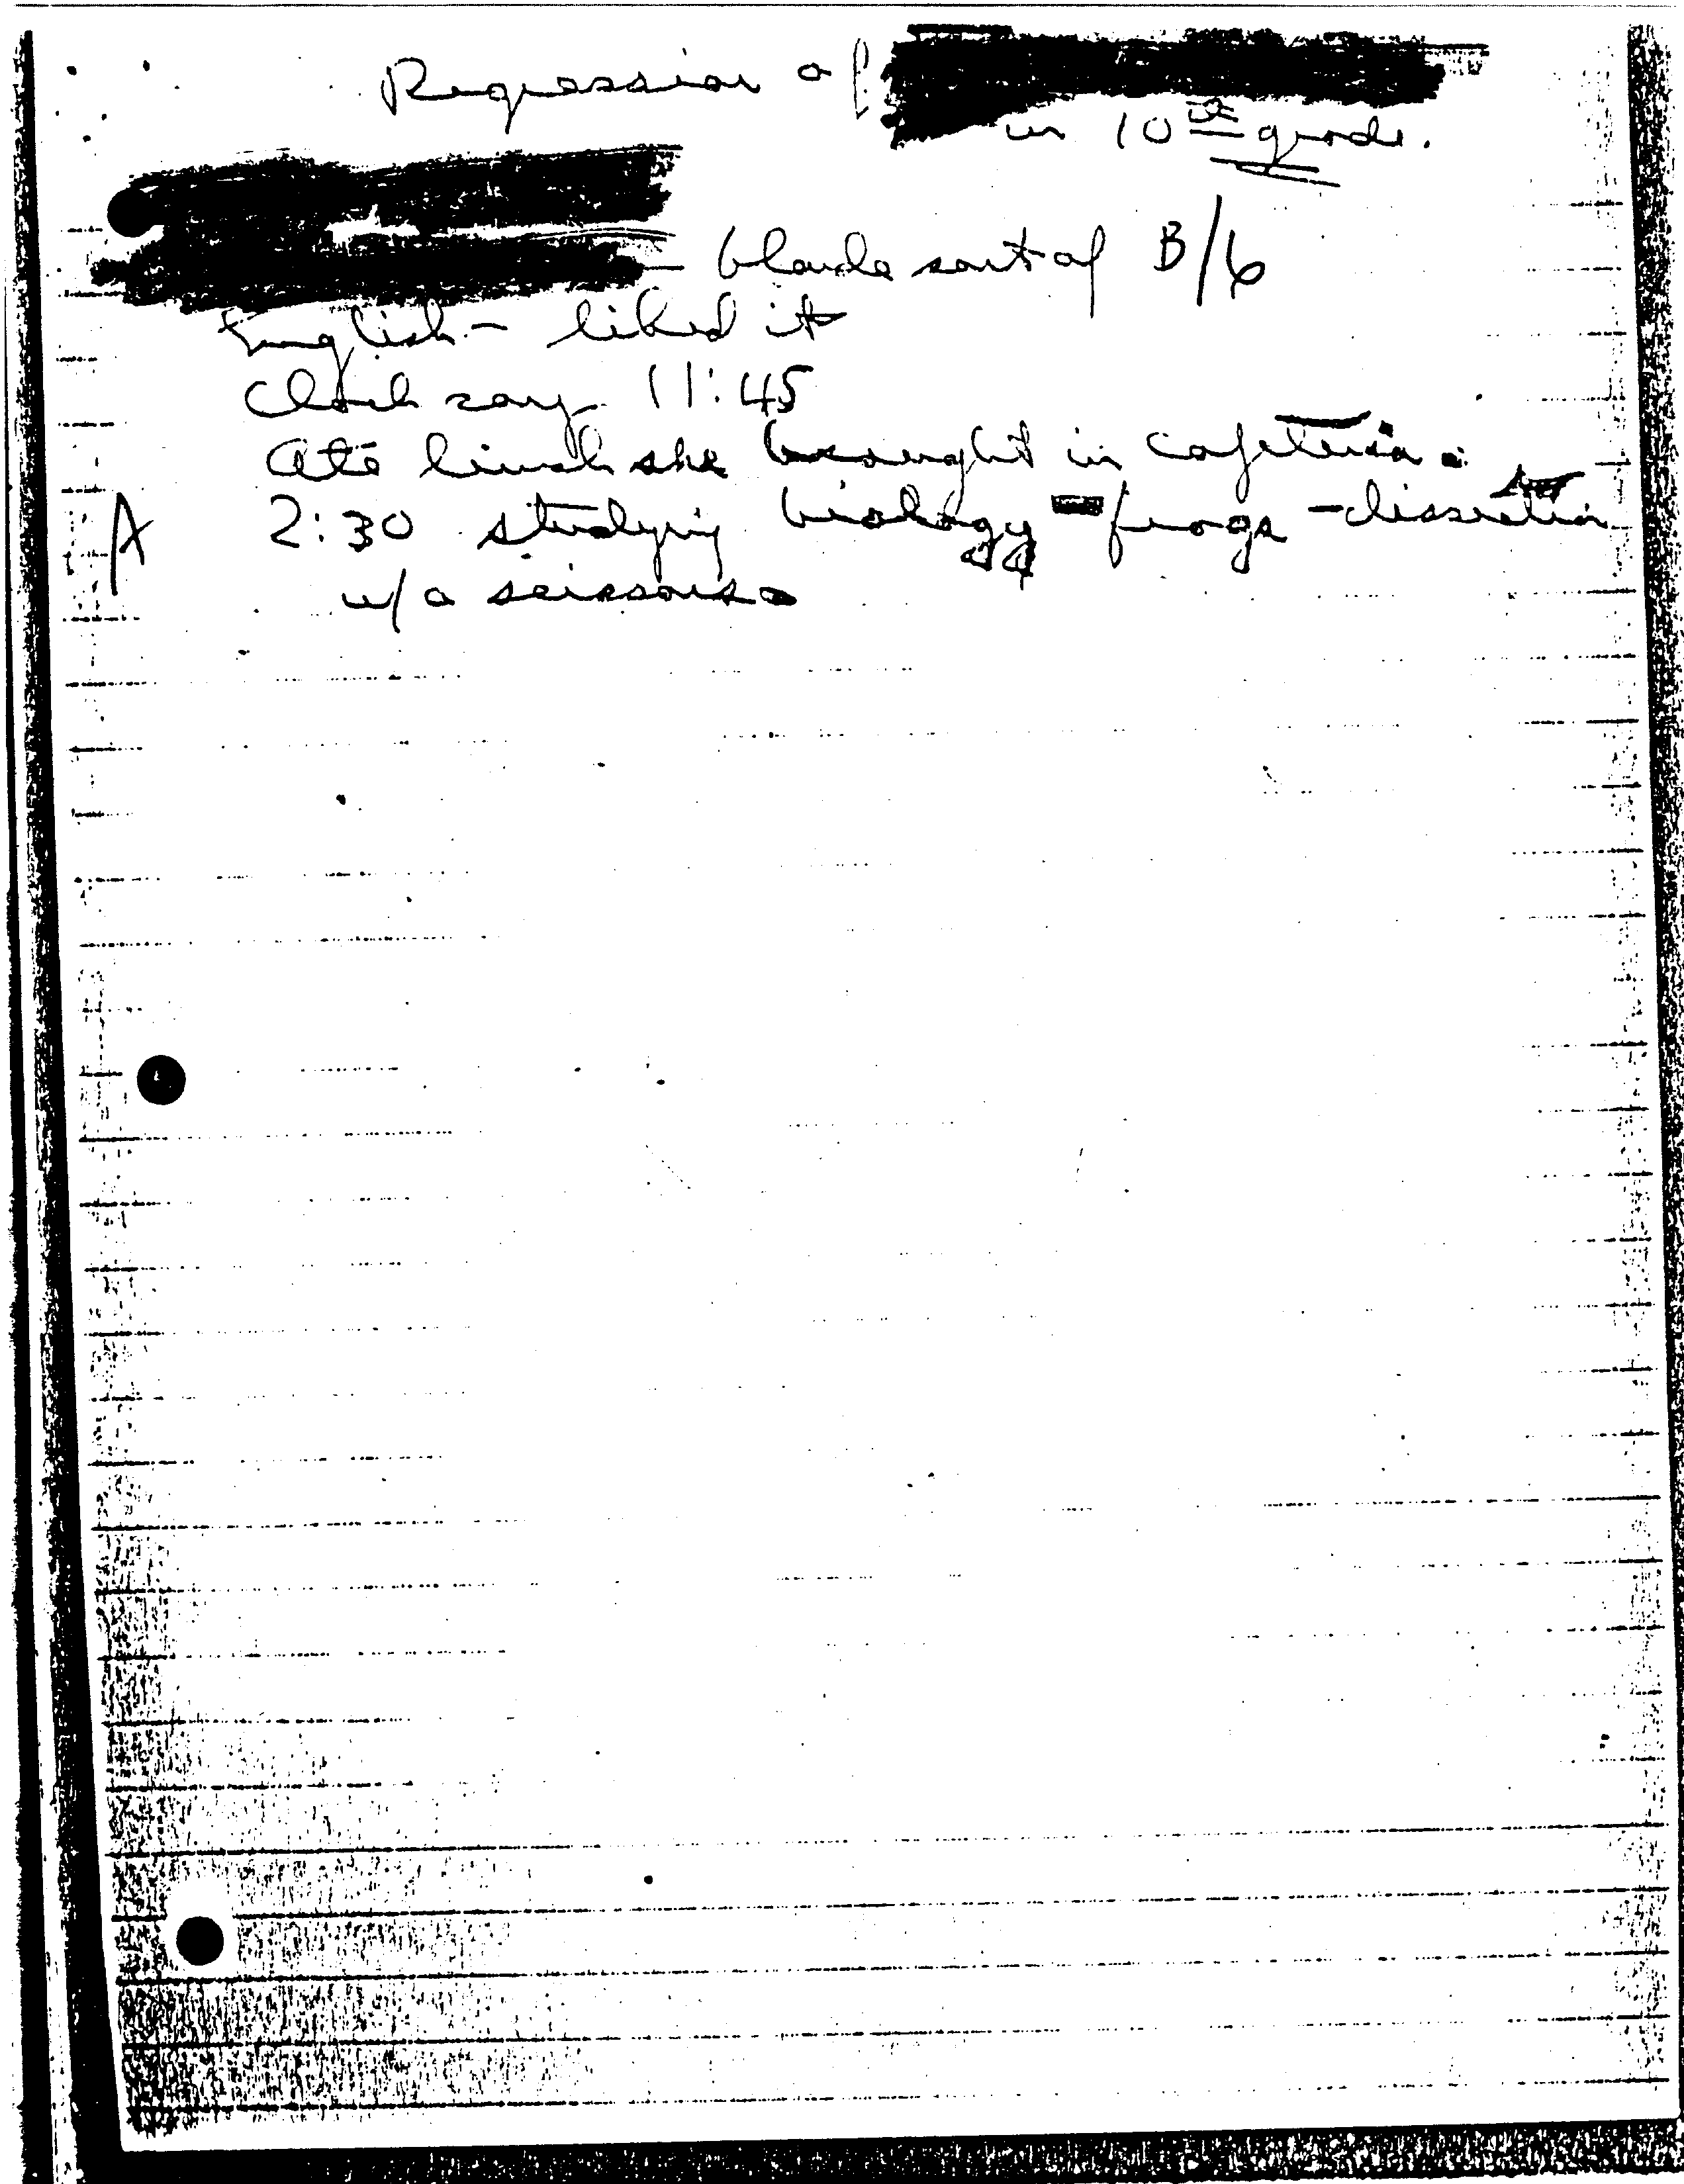 Regression of
in 10th grade.
blonde sort of B/6
English - liked it
Clock say 11:45
Ate lunch she brought in cafeteria.
A 2:30 studying biology - frogs - dissection
w/a scissors